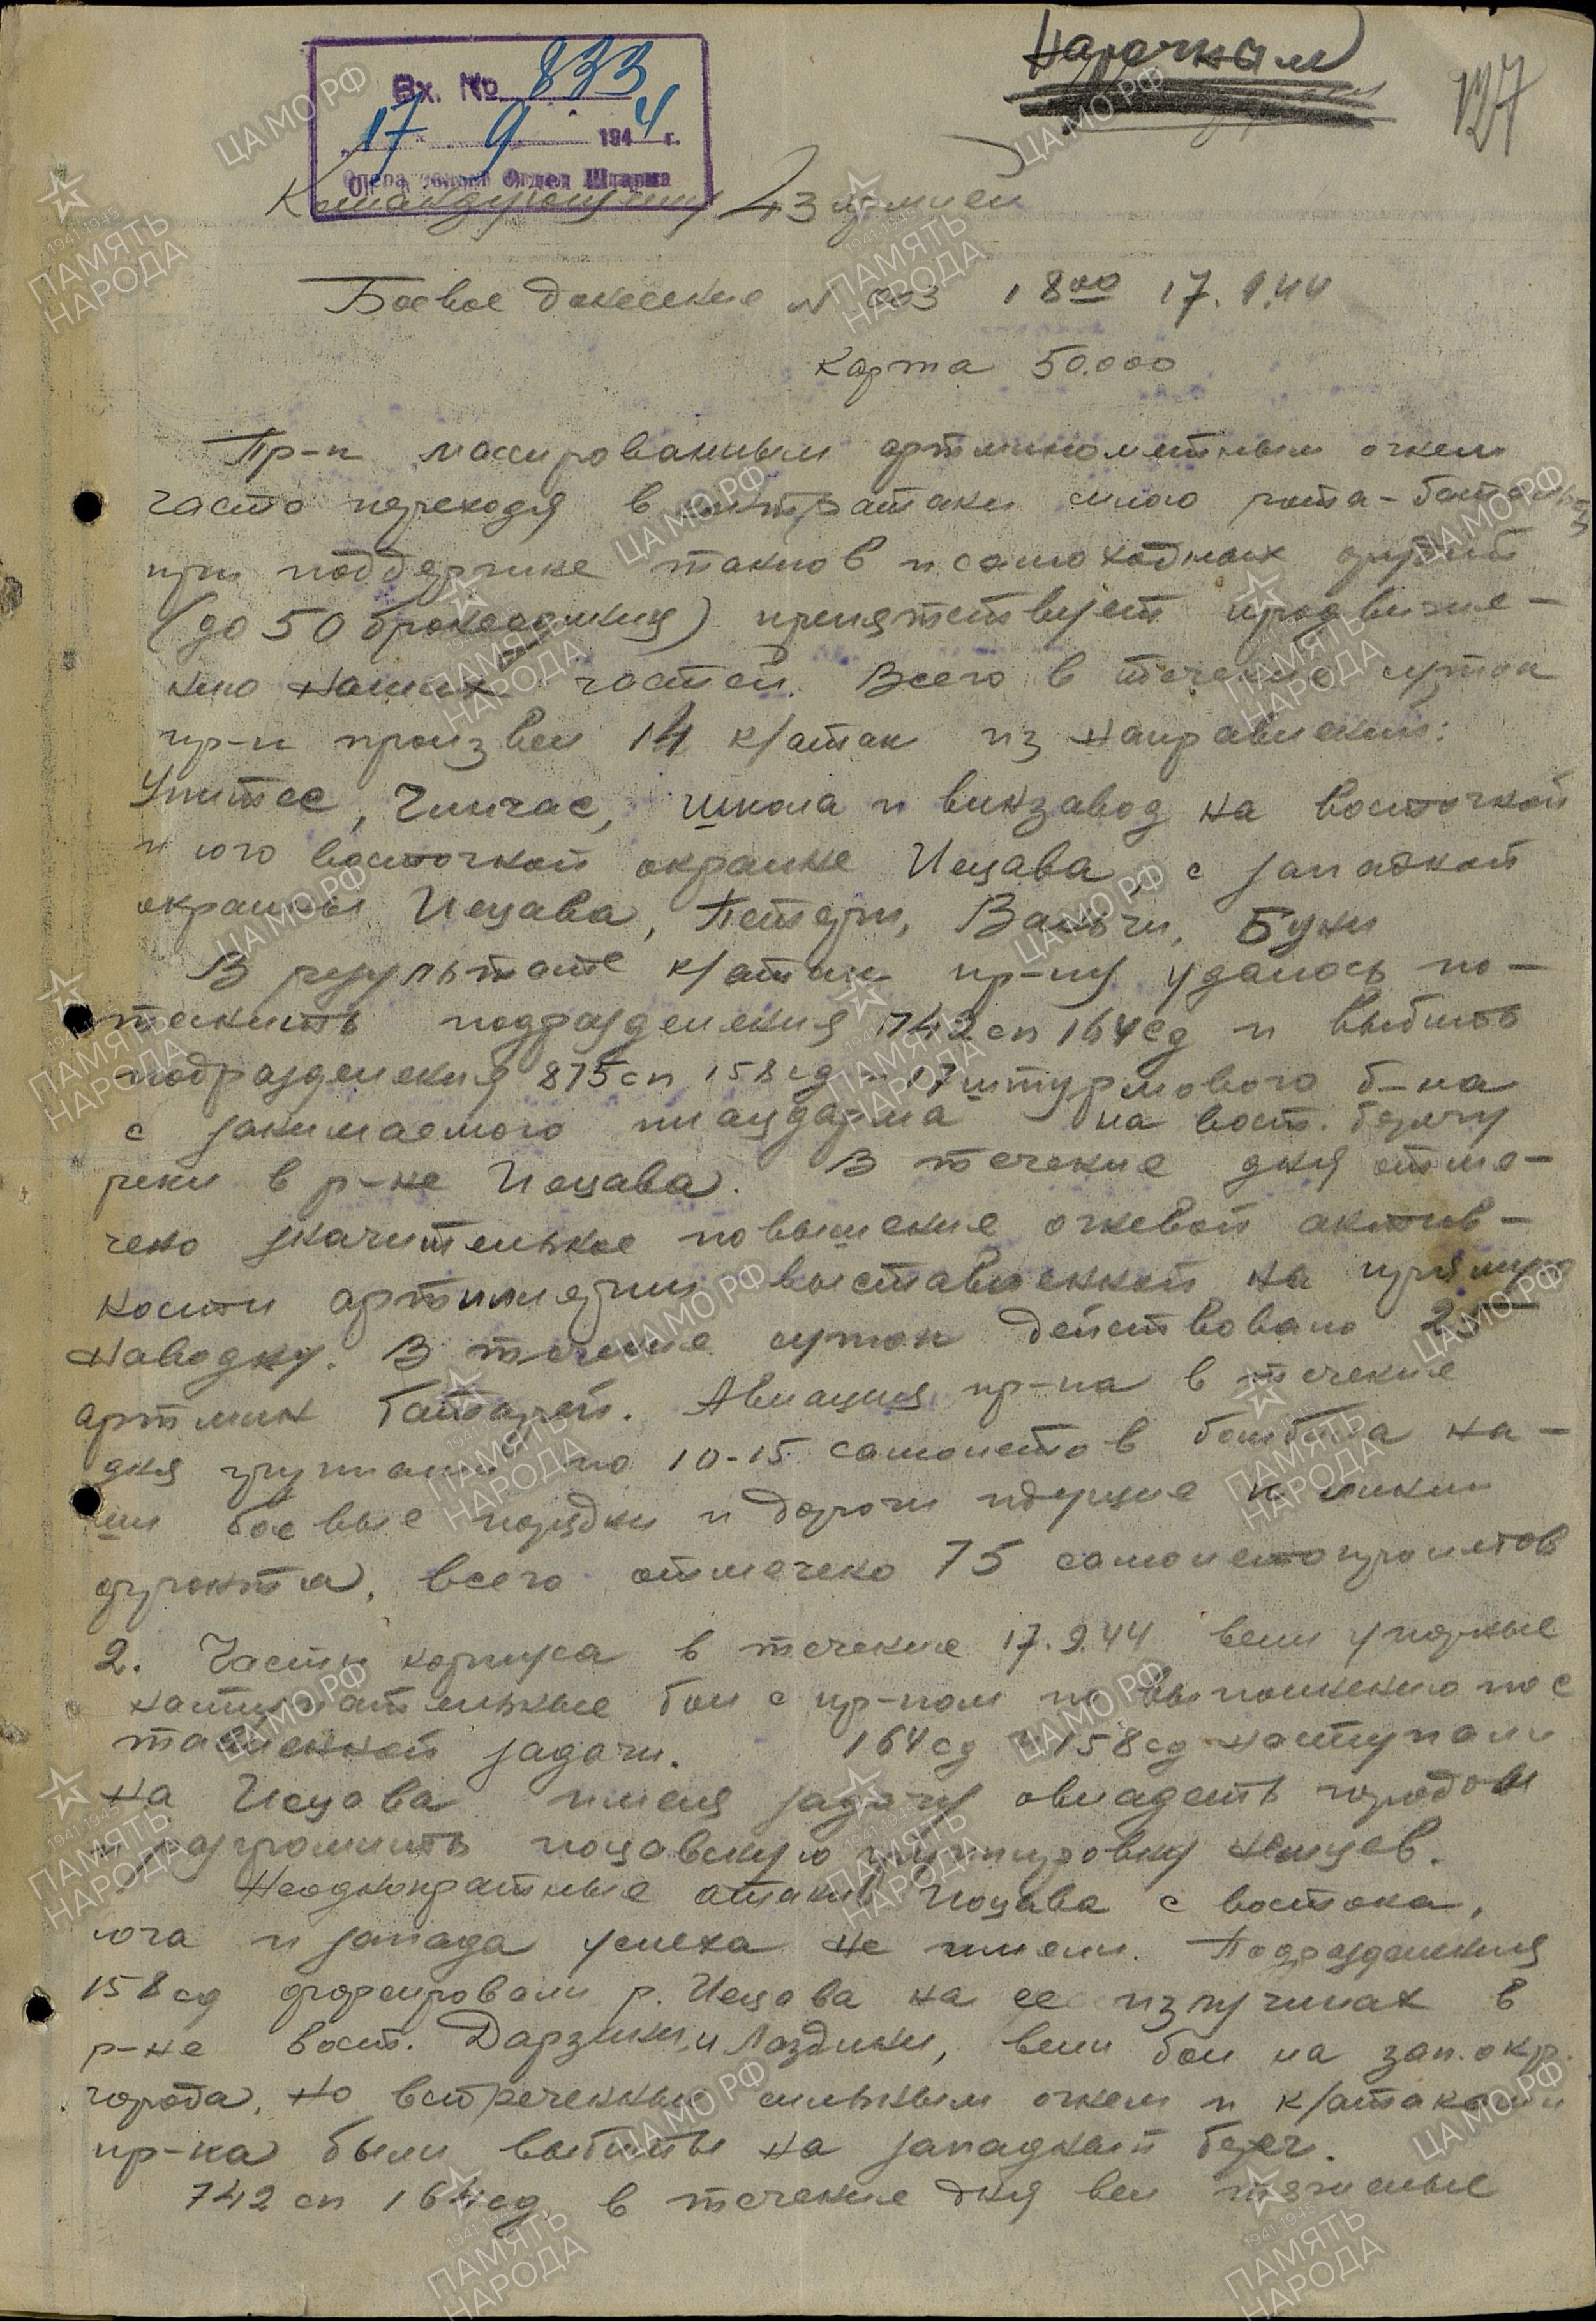 Нарочным
127
Вх. № 833
17 9 1944 г.
Оперативный Отдел Штарма
Командующему 43 армией
Боевое донесение № 003 18 00 17.9.44
Карта 50.000
Пр-к массированным артминометным огнем
часто переходя в контратаки силою рота-батальон
при поддержке танков и самоходных орудий
(до 50 бронеединиц) препятствует продвиже-
нию наших частей. Всего в течение суток
пр-к произвел 14 к/атак из направлений:
Упитес, Чинчас, школа и винзавод на восточной
и юго восточной окраине Иецава, с западной
окраины Иецава, Петери, Ваньчи, Буки
В результате к/атак пр-ку удалось по-
теснить подразделения 742 сп 164 сд и выбить
подразделения 875 сп 158 сд и 17 штурмового б-на
с занимаемого плацдарма на вост. берегу
реки в р-не Иецава. В течение дня отме-
чено значительное повышение огневой актив-
ности артиллерии выставленной на прямую
наводку. В течение суток действовало 25
артмин батарей. Авиация пр-ка в течение
дня группами по 10-15 самолетов бомбила на-
ши боевые порядки и дороги идущие к линии
фронта, всего отмечено 75 самолетопролетов
2. Части корпуса в течение 17.9.44 вели упорные
наступательные бои с пр-ком по выполнению пос
тавленной задачи. 164 сд и 158 сд наступали
на Иецава имея задачу овладеть городом
и разгромить иецавскую группировку немцев.
Неоднократные атаки Иецава с востока,
юга и запада успеха не имели. Подразделения
158 сд форсировали р. Иецава на ее излучинах в
р-не вост. Дарзини и Лаздики, вели бои на зап. окр.
города, но встреченные сильным огнем и к/атаками
пр-ка были выбиты на западный берег.
742 сп 164 сд в течение дня вел тяжелые
ЦА МО РФ
1941-1945
ПАМЯТЬ
НАРОДА